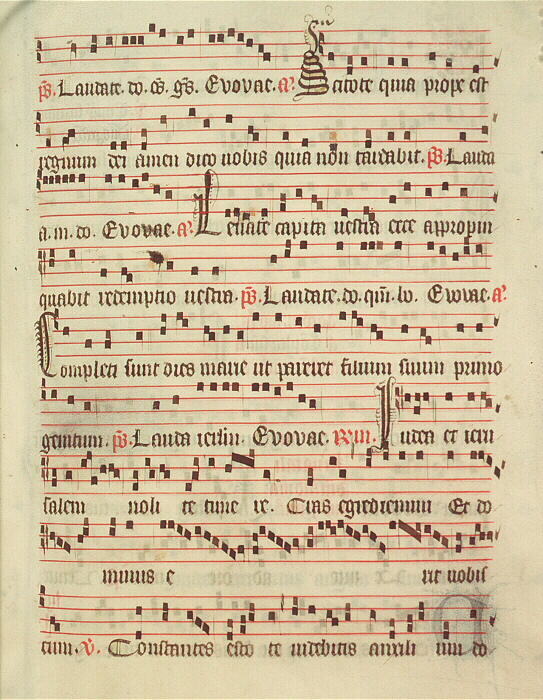 ps. Laudate. do. oēs. gēs. Evovae. a. Scitote quia prope est
regnum dei amen dico uobis quia non tardabit. ps. Lauda
a. m. do. Evovae. a. Leuate capita uestra ecce appropin
quabit redemptio uestra. ps. Laudate. do. qm̄. bo. Evovae. a.
Completi sunt dies marie ut pareret filium suum primo
genitum. ps. Lauda ierlm. Evovae. Iudea et ieru
salem noli te time re. Cras egrediemini Et do
minus e rit uobis
cum. v. Constantes esto te uidebitis auxili um do